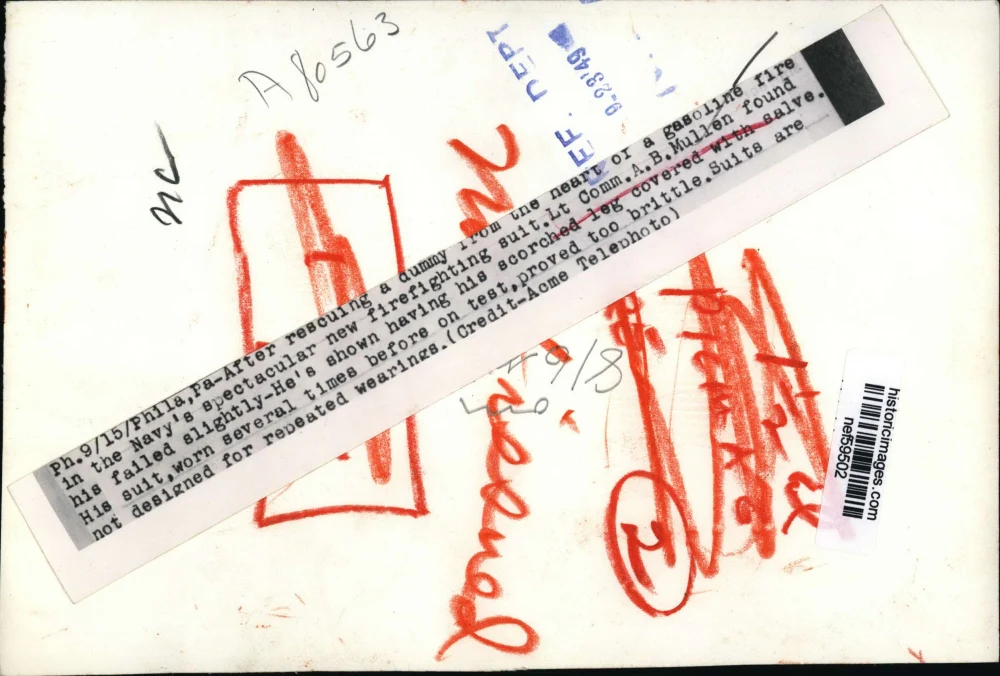 A80563
REF. DEPT
9-23'49
nc
Ph.9/15/Phila,Pa-After rescuing a dummy from the heart of a gasoline fire
in the Navy's spectacular new firefighting suit.Lt Comm.A.B.Mullen found
his failed slightly-He's shown having his scorched leg covered with salve.
His suit,worn several times before on test,proved too brittle.Suits are
not designed for repeated wearings.(Credit-Acme Telephoto)
9/8
2
historicimages.com
nef59502